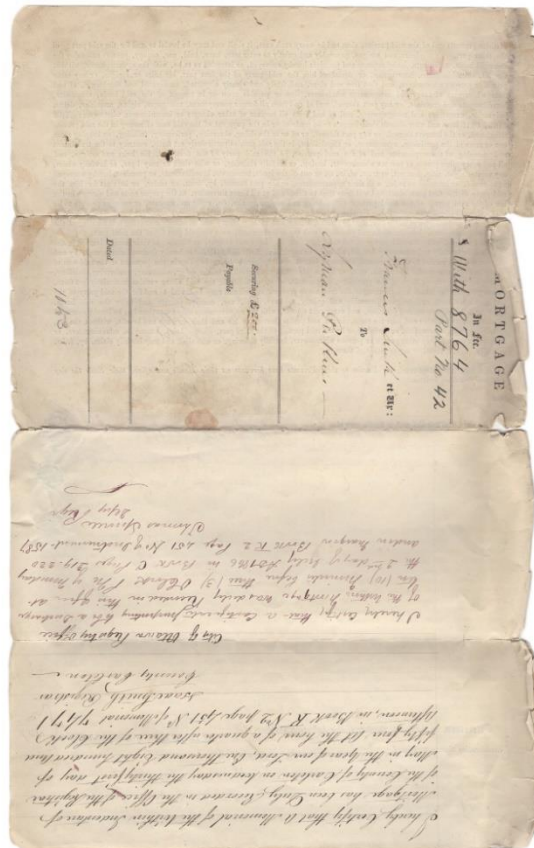 MORTGAGE
In Fee.
& With 8764
Part No 42
Francis et Ux:
To
Securing £200.
Payable
Dated
City of Ottawa Registry Office
I hereby Certify that a Certificate purporting to be a Discharge
of the within Mortgage was duly Recorded in this Office at
Ten (10) Minutes before Three (3) O'Clock P.M. of Monday
the 2nd day of July AD 1866 in Book C Page 219-220
under margin Book K 2 Page 451 No of Instrument 1587
Thomas
Depy Regr
I hereby Certify that a Memorial of the within Indenture of
Mortgage has been Duly Recorded in the Office of the Registrar
of the County of Carleton on Wednesday the thirty first day of
May in the Year of our Lord One thousand Eight hundred and
fifty four at the hour of a quarter after three of the Clock
Afternoon, in Book K No 2 page 451 No of Memorial
Isaac Smith, Registrar
County Carleton